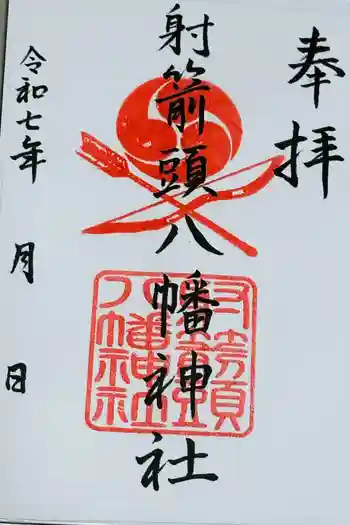 奉拝
射箭頭八幡神社
令和七年 月 日
射箭頭
八幡神社